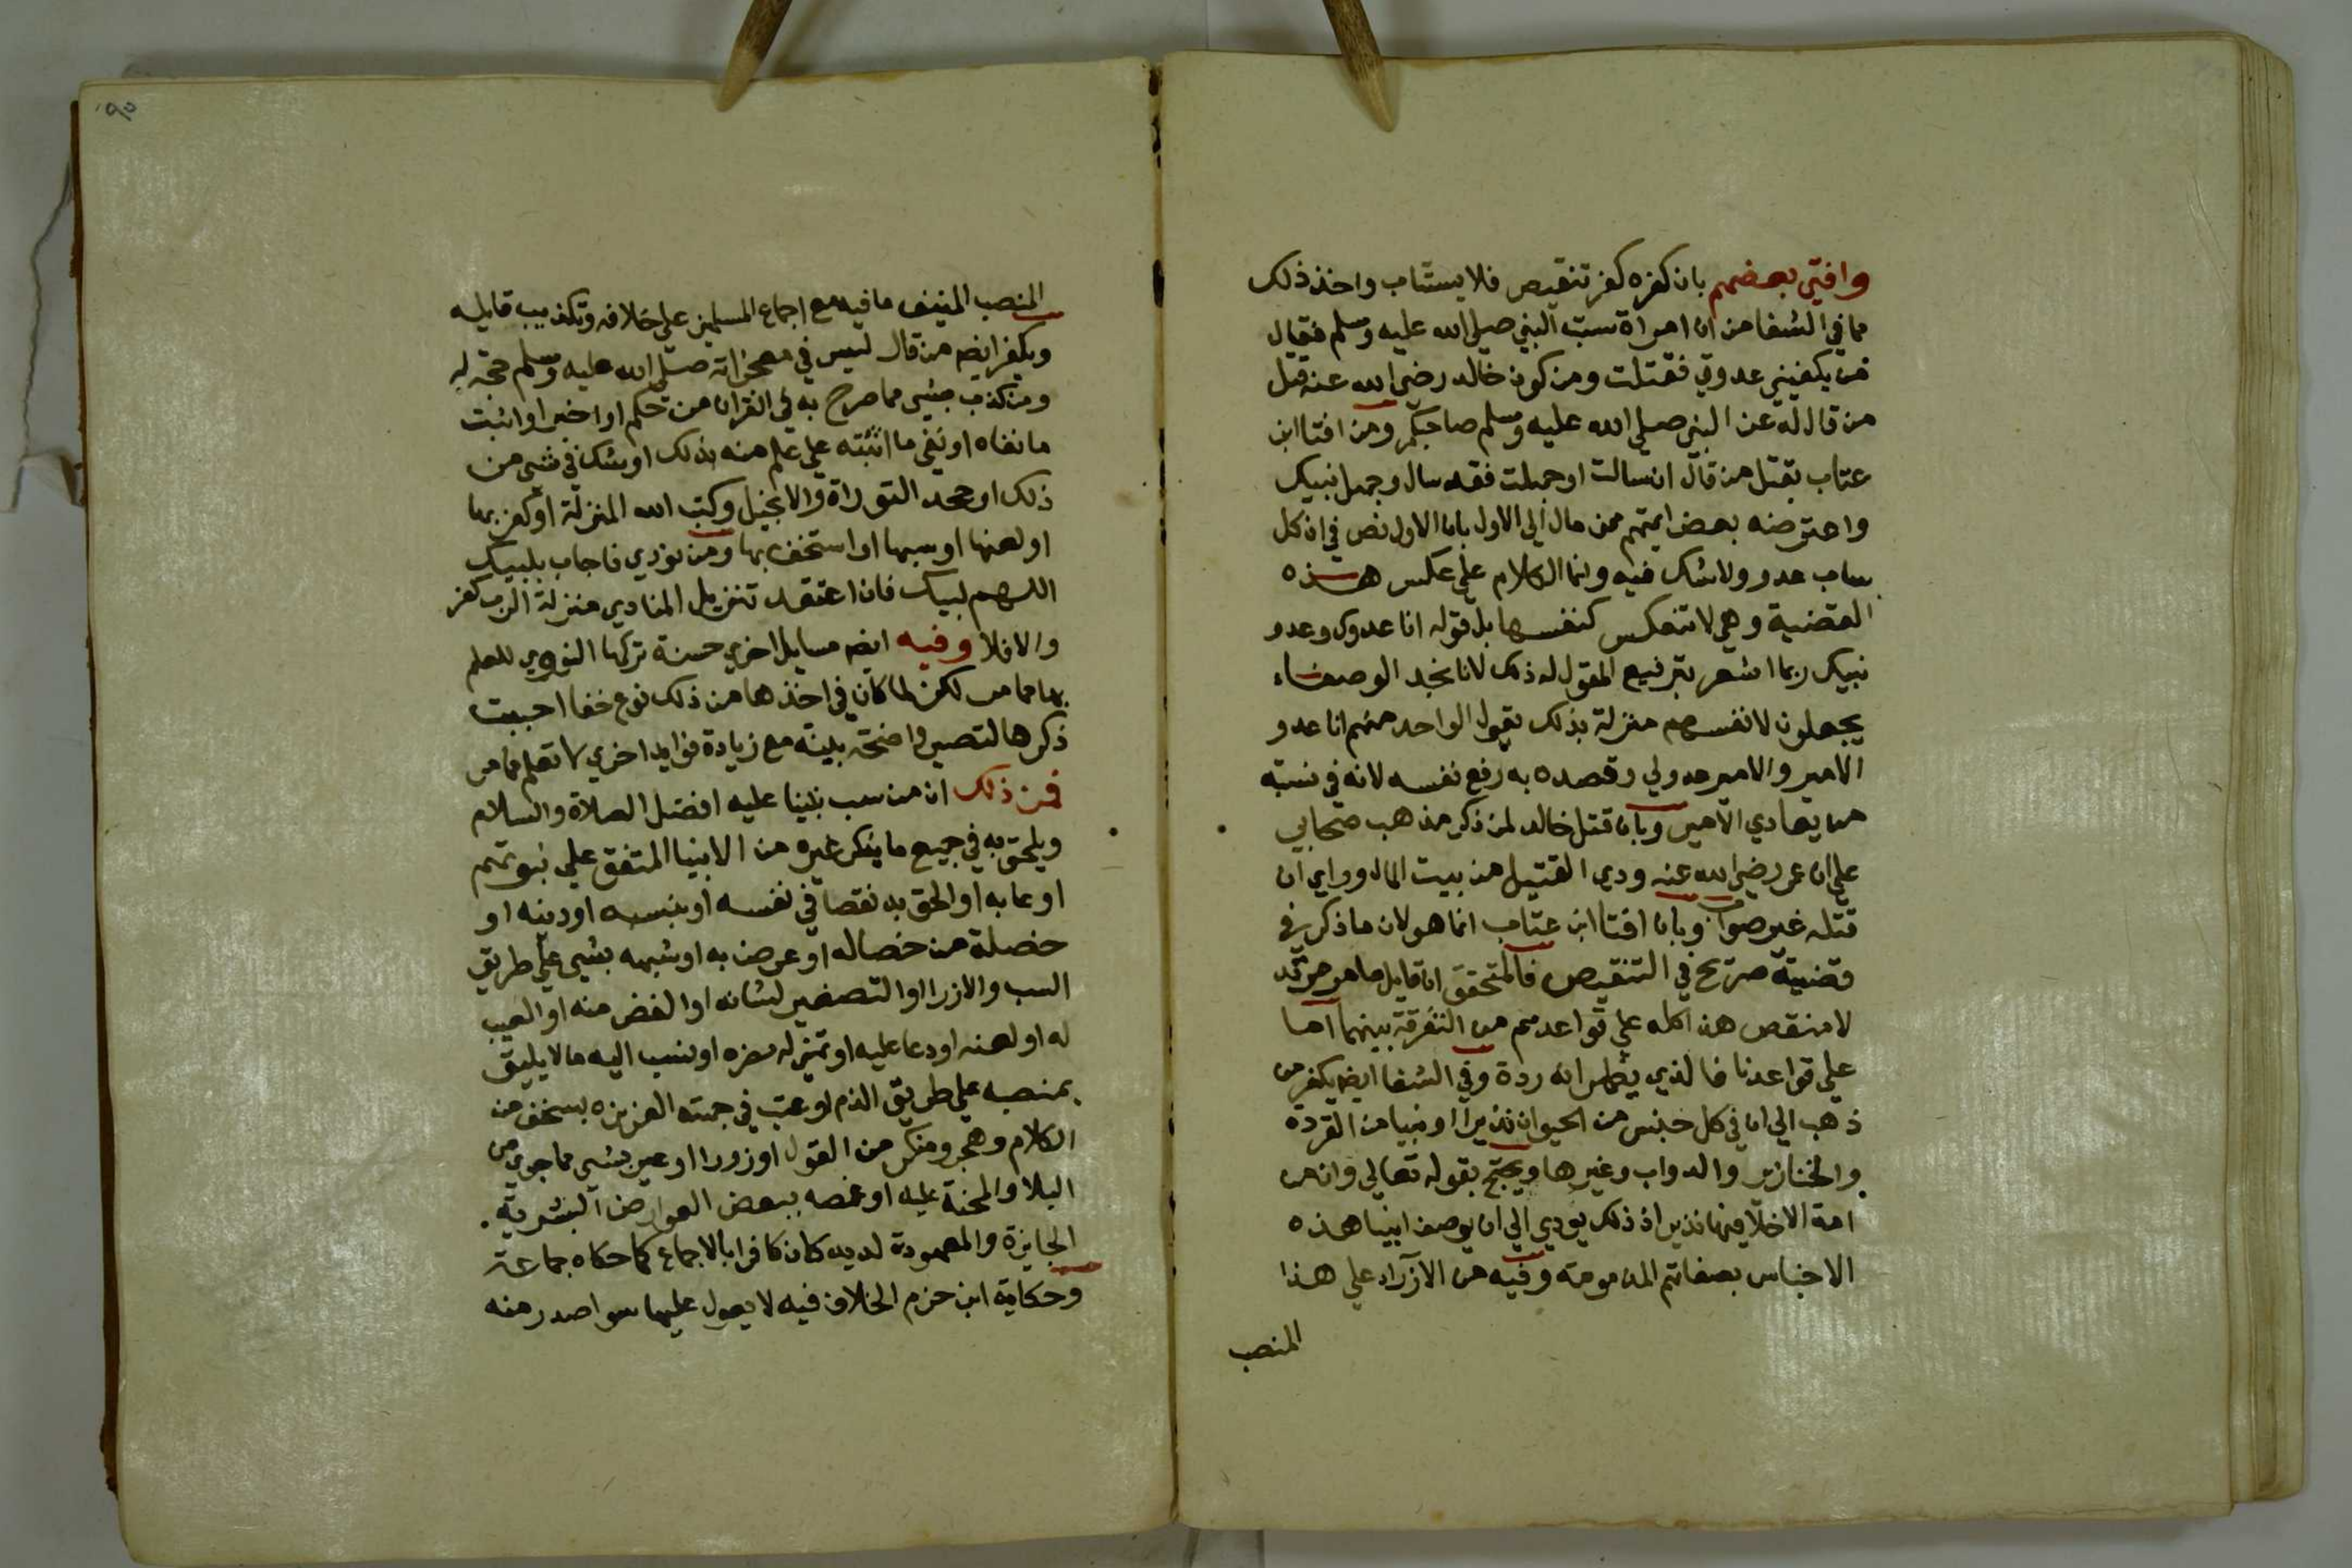 وافتي بعضهم بان كفره كفر تنقيص فلا يستتاب واخذ ذلك
مما في الشفا من ان امراة سبت النبي صلي الله عليه وسلم فقال
من يكفيني عدوتي فقتلت ومن كون خالد رضي الله عنه قتل
من قال له عن النبي صلي الله عليه وسلم صاحبكم ومن افتا ابن
عتاب بقتل من قال ان سالت او جهلت فقد سال وجهل نبيك
واعترضه بعض ايمتهم ممن مال الي الاول بان الاول نص في ان كل
ساب عدو ولا شك فيه وانما الكلام علي عكس هذه
القضية وهي لا تنعكس كنفسها بل قوله انا عدوك وعدو
نبيك ربما اشعر بترفيع المقول له ذلك لانا نجد الوصفاء
يجعلون لانفسهم منزلة بذلك يقول الواحد منهم انا عدو
الامير والامير عدولي وقصده به رفع نفسه لانه في نسبته
من يعادي الامير وبان قتل خالد لمن ذكر مذهب صحابي
علي ان عمر رضي الله عنه ودي القتيل من بيت المال وراي ان
قتله غير صواب وبان افتا ابن عتاب انما هو لان ما ذكر في
قضيته صريح في التنقيص فالمتحقق ان قايل ما هو مرتد
لا منقص هذا كله علي قواعدهم من التفرقة بينهما اما
علي قواعدنا فالذي يظهر انه ردة وفي الشفا ايضا يكفر من
ذهب الي ان في كل جنس من الحيوان نذيرا او نبيا من القردة
والخنازير والدواب وغيرها ويحتج بقوله تعالي وان من
امة الا خلا فيها نذير اذ ذلك يودي الي ان يوصف انبيا هذه
الاجناس بصفاتهم المذمومة وفيه من الازراء علي هذا
المنصب
٩٥
المنصب المنيف ما فيه مع اجماع المسلمين علي خلافه وتكذيب قايله
ويكفر ايضا من قال ليس في معجزاته صلي الله عليه وسلم حجة له
ومن كذب بشي مما صرح به في القران من حكم او خبر او اثبت
ما نفاه او نفي ما اثبته علي علم منه بذلك او شك في شي من
ذلك او جحد التوراة والانجيل وكتب الله المنزلة او كفر بها
او لعنها او سبها او استخف بها ومن نودي فاجاب بلبيك
اللهم لبيك فان اعتقد تنزيل المنادي منزلة الرب كفر
والا فلا وفيه ايضا مسايل اخري حسنة تركها النووي للعلم
بها مما مر لكن لما كان في اخذها من ذلك نوع خفا احببت
ذكرها لتصير واضحة بينة مع زيادة فوايد اخري لا تعلم مما مر
فمن ذلك ان من سب نبينا عليه افضل الصلاة والسلام
ويلحق به في جميع ما يذكر غيره من الانبيا المتفق علي نبوتهم
او عابه او الحق به نقصا في نفسه او نسبه او دينه او
خصلة من خصاله او عرض به او شبهه بشي علي طريق
السب والازرا او التصغير لشانه او الغض منه او العيب
له او لعنه او دعا عليه او تمني له مضرة او نسب اليه ما لا يليق
بمنصبه علي طريق الذم او عبث في جهته العزيزه بسخف من
الكلام وهجر ومنكر من القول او زورا او عيره بشي مما جري من
البلا والمحنة عليه او غمصه ببعض العوارض البشرية
الجايزة والمعهودة لديه كان كافرا بالاجماع كما حكاه جماعة
وحكاية ابن حزم الخلاف فيه لا يعول عليها سوا صدر منه